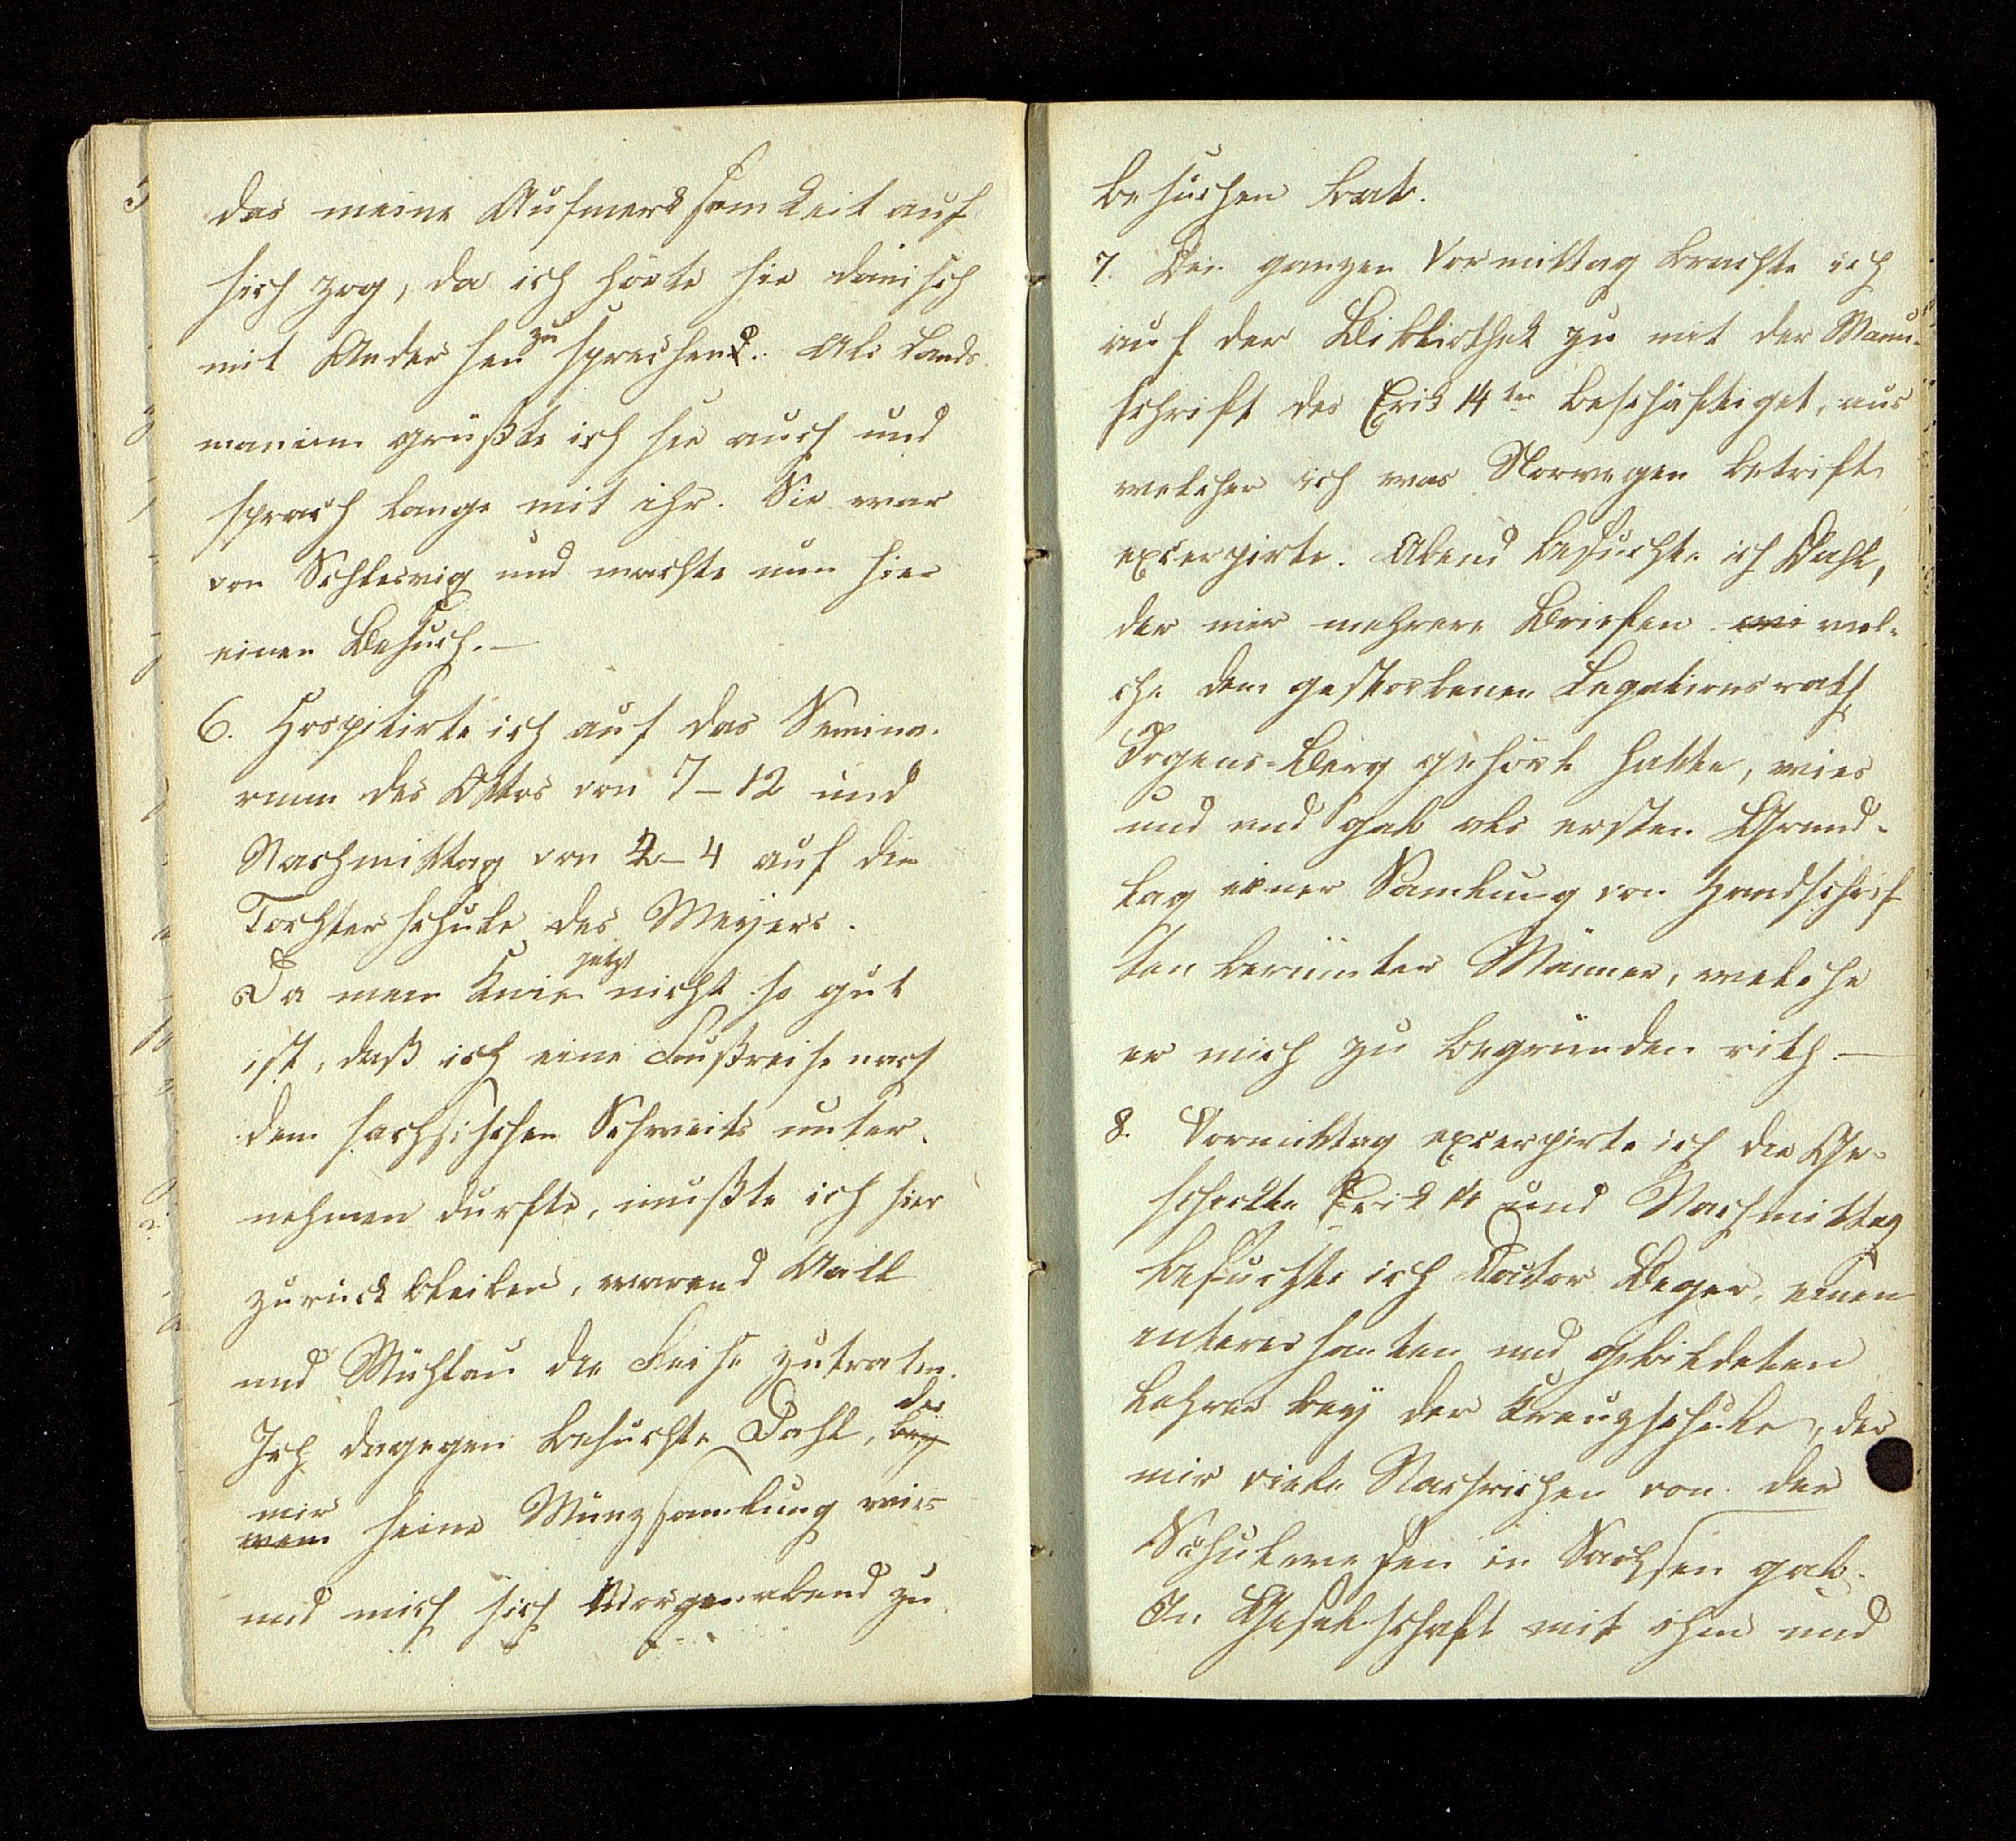 das meine Aufmerksamkeit auf
sich zog, da ich hörte sie dänisch
mit Andersen zu sprechen. Als Lands
maninn grüßte ich sie auch und
sprach lange mit ihr. Sie war
von Schlesvig und machte nun hier
einen Besuch. —
6. Hospitirte ich auf das Semina-
rium des Ottos von 7–12 und
Nachmittag von 2–4 auf die
Tochterschule des Meyers.
Da mein Knie jetzt nicht so gut
ist, daß ich eine Fußreise nach
dem sachsischen Schweits unter-
nehmen durfte, mußte ich hier
zurück bleiben, warend Aall
und Mühlau die Reise zutraten.
Ich dagegen besuchte Dahl, bey der
wem mir seine Münzsamlung wies
und mich sich Morgenabend zu
besuchen bat.
7. Den ganzen Vormittag brachte ich
auf der Bibliothek zu mit der Manu-
schrift des Erik 14ten beschäftiget, aus
welcher ich was Norwegen betrift
excerpirte. Abend besuchte ich Dahl,
der mir mehrere Briefen wi wel-
che dem gestorbenen Legationsrath
Irgens-Berg gehört hatte, wies
und und gab als ersten Grund-
lag einer Samlung von Handschrif
ten berümter Männer, welche
er mich zu begründen rith. —
8. Vormittag excerpirte ich die Ge-
schickte Erik 14 und Nachmittag
besuchte ich Doctor Beger, einen
interessanten und gebildeten
Lehrer bey der Kreuzschule, der
mir viele Nachrichen von der
Schulwesen in Sachsen gab.
In Geselschaft mit ihm und